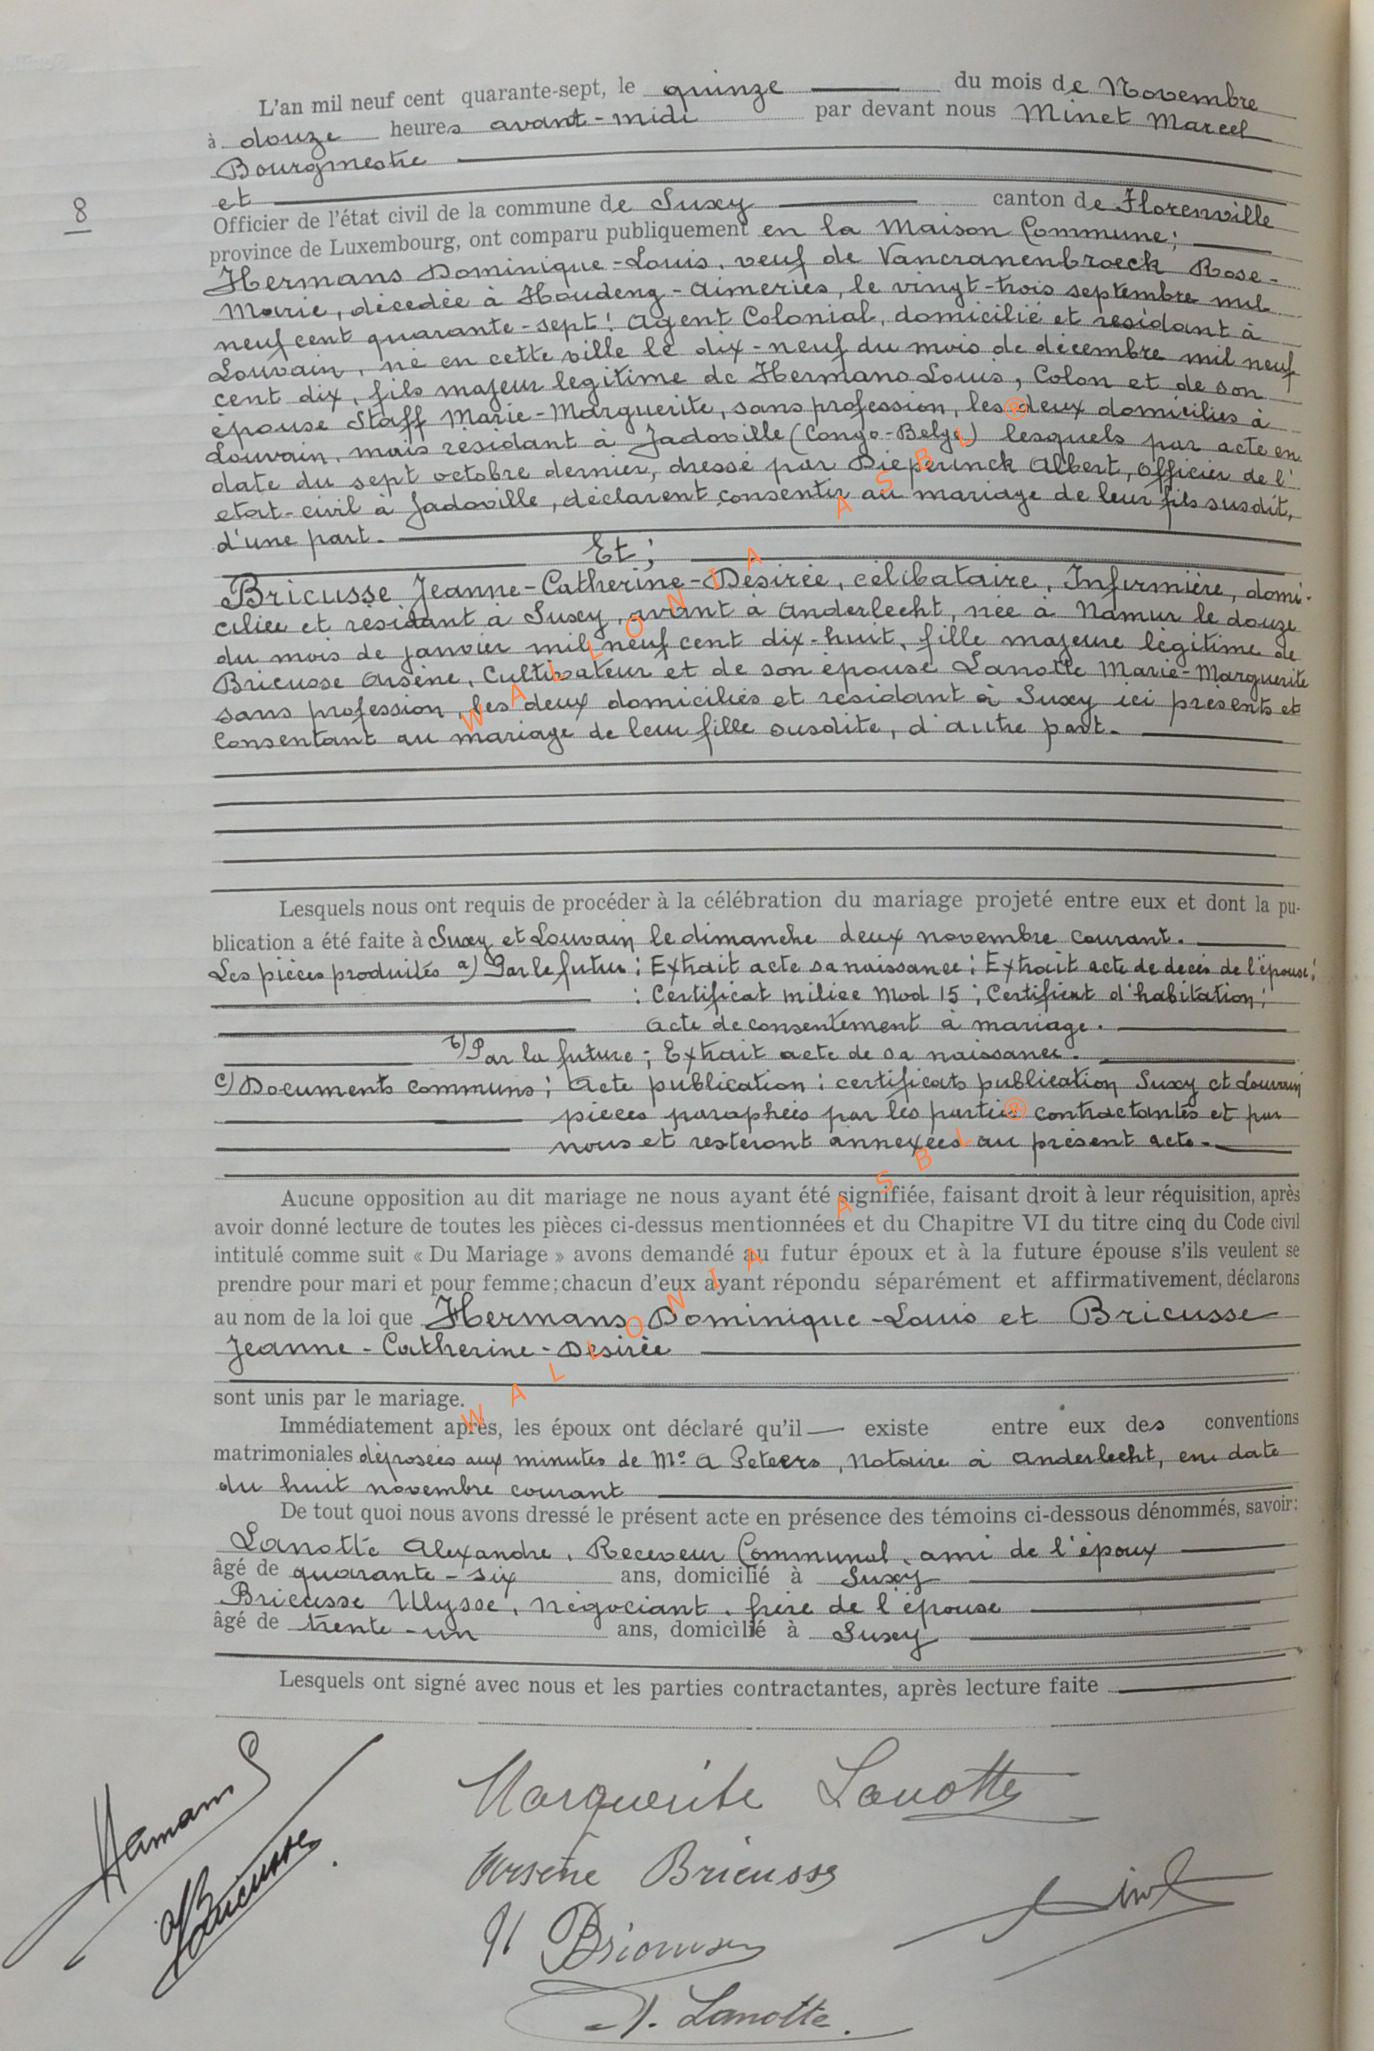 L'an mil neuf cent quarante-sept, le quinze du mois de Novembre
à douze heures avant-midi par devant nous Minet Marcel
Bourgmestre
et
8
Officier de l'état civil de la commune de Suxy canton de Florenville
province de Luxembourg, ont comparu publiquement en la Maison Commune;
Hermans Dominique-Louis, veuf de Vancranenbroeck Rose-
Marie, décédée à Houdeng-Aimeries, le vingt-trois septembre mil
neuf cent quarante-sept! Agent Colonial, domicilié et résidant à
Louvain, né en cette ville le dix-neuf du mois de décembre mil neuf
cent dix, fils majeur légitime de Hermans Louis, Colon et de son
épouse Staff Marie-Marguerite, sans profession, les deux domiciliés à
Louvain, mais résidant à Jadoville (Congo-Belge) lesquels par acte en
date du sept octobre dernier, dressé par Dieperinck Albert, Officier de l'
état-civil à Jadoville, déclarent consentir au mariage de leur fils susdit,
d'une part.
Et;
Bricusse Jeanne-Catherine-Désirée, célibataire, Infirmière, domi-
ciliée et résidant à Suxy, avant à Anderlecht, née à Namur le douze
du mois de janvier mil neuf cent dix-huit, fille majeure légitime de
Bricusse Arsène, Cultivateur et de son épouse Lanotte Marie-Marguerite
sans profession, les deux domiciliés et résidant à Suxy ici présents et
Consentant au mariage de leur fille susdite, d'autre part.
Lesquels nous ont requis de procéder à la célébration du mariage projeté entre eux et dont la pu-
blication a été faite à Suxy et Louvain le dimanche deux novembre courant.
Les pièces produites a) Par le futur; Extrait acte sa naissance; Extrait acte de décès de l'épouse;
: Certificat milice Mod 15; Certificat d'habitation;
Acte de consentement à mariage.
b) Par la future; Extrait acte de sa naissance.
c) Documents communs; Acte publication; certificats publication Suxy et Louvain
pièces paraphées par les parties contractantes et par
nous et resteront annexées au présent acte.
Aucune opposition au dit mariage ne nous ayant été signifiée, faisant droit à leur réquisition, après
avoir donné lecture de toutes les pièces ci-dessus mentionnées et du Chapitre VI du titre cinq du Code civil
intitulé comme suit « Du Mariage » avons demandé au futur époux et à la future épouse s'ils veulent se
prendre pour mari et pour femme; chacun d'eux ayant répondu séparément et affirmativement, déclarons
au nom de la loi que Hermans Dominique-Louis et Bricusse
Jeanne-Catherine-Désirée
sont unis par le mariage.
Immédiatement après, les époux ont déclaré qu'il existe entre eux des conventions
matrimoniales déposées aux minutes de Me A Peteers, Notaire à Anderlecht, en date
du huit novembre courant
De tout quoi nous avons dressé le présent acte en présence des témoins ci-dessous dénommés, savoir:
Lanotte Alexandre, Receveur Communal, ami de l'époux
âgé de quarante-six ans, domicilié à Suxy
Bricusse Ulysse, négociant, frère de l'épouse
âgé de trente-un ans, domicilié à Suxy
Lesquels ont signé avec nous et les parties contractantes, après lecture faite
Hermans
Bricusse
Marguerite Lanotte
Arsène Bricusse
U Bricusse
Minet
A. Lanotte.
WALLONIA ASBL ®
WALLONIA ASBL ®